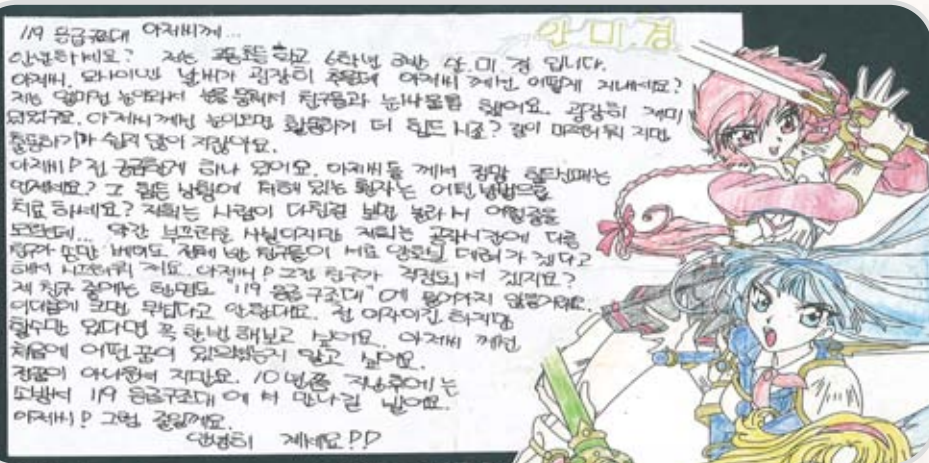 119 응급구조대 아저씨께...
안.미.경
안녕하세요? 저는 초등 학교 6학년 3반 안.미.경 입니다.
아저씨, 요사이는 날씨가 굉장히 추운데 아저씨 께선 어떻게 지내세요?
저는 얼마전 눈이와서 눈을 뭉쳐서 친구들과 눈싸움을 했어요. 굉장히 재미
있었구요. 아저씨께선 눈이오면 활동하기 더 힘드시죠? 길이 미끄러워 지면
출동하기가 쉽지 않아 지잖아요.
아저씨! 전 궁금한게 하나 있어요. 아저씨들 께서 정말 힘든때는
언제세요? 그 힘든 상황에 처해 있는 환자는 어떤 방법으로
치료 하세요? 저희는 사람이 다친걸 보면 놀라서 어쩔줄을
모르는데... 약간 부끄러운 사실이지만 저희는 공작시간에 다른
친구가 손만 베여도 전체 반 친구들이 서로 양호실 데려가 준다고
해서 시끄러워 져요. 아저씨! 그건 친구가 걱정되서 겠지요?
제 친구 중에는 한명도 "119 응급구조대"에 들어가지 않을거래요.
이다음에 크면 무섭다고 안한대요. 전 여자이긴 하지만
할수만 있다면 꼭 한번 해보고 싶어요. 아저씨 께선
처음에 어떤 꿈이 있으셨는지 알고 싶어요.
지만요. 10년쯤 지난후에는
소방서 119 응급구조대 에서 만나길 빌어요.
아저씨! 그럼 줄일께요.
안녕히 계세요!!